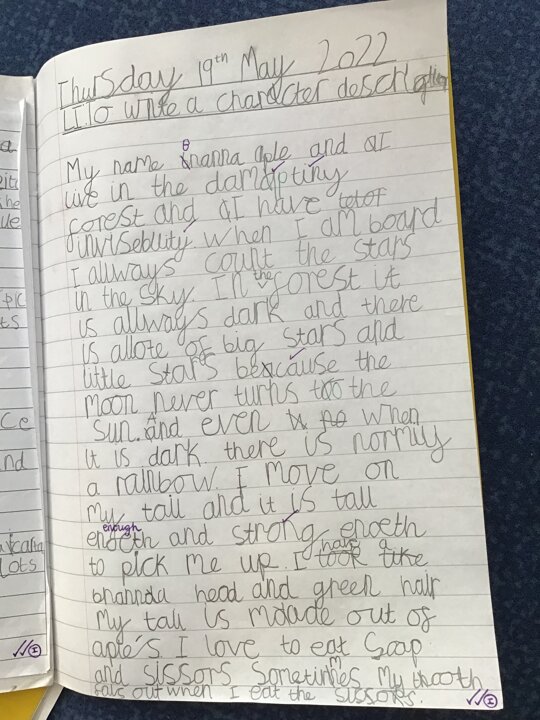 Thursday 19th May 2022
LI.To write a character description
My name Bnanna aple and I
live in the damdptiny
forest and I have
invisebility when I am board
I allways count the stars
in the sky. In the forest it
is allways dark and there
is allote of big stars and
little stars because the
moon never turns to the
sun. And even when
it is dark there is normiy
a rainbow. I move on
my tail and it is tall
enough
and strong enoeth
to pick me up. I have a
bnannda head and green hair
My tail is made out of
aple's I love to eat Soap
and sissors Sometimes My thooth
fals out when I eat the sissors.